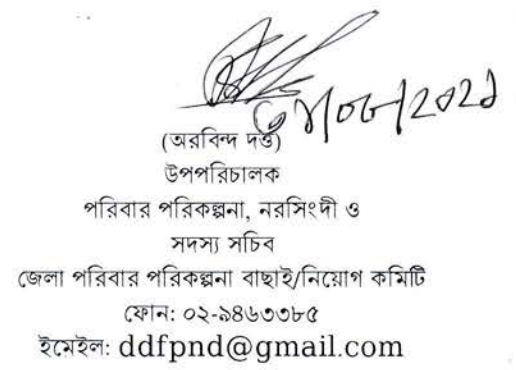 (অরবিন্দ দত্ত)
উপপরিচালক
পরিবার পরিকল্পনা, নরসিংদী ও
সদস্য সচিব
জেলা পরিবার পরিকল্পনা বাছাই/নিয়োগ কমিটি
ফোন: ০২-৯৪৬৩৩৮৫
ইমেইল: ddfpnd@gmail.com